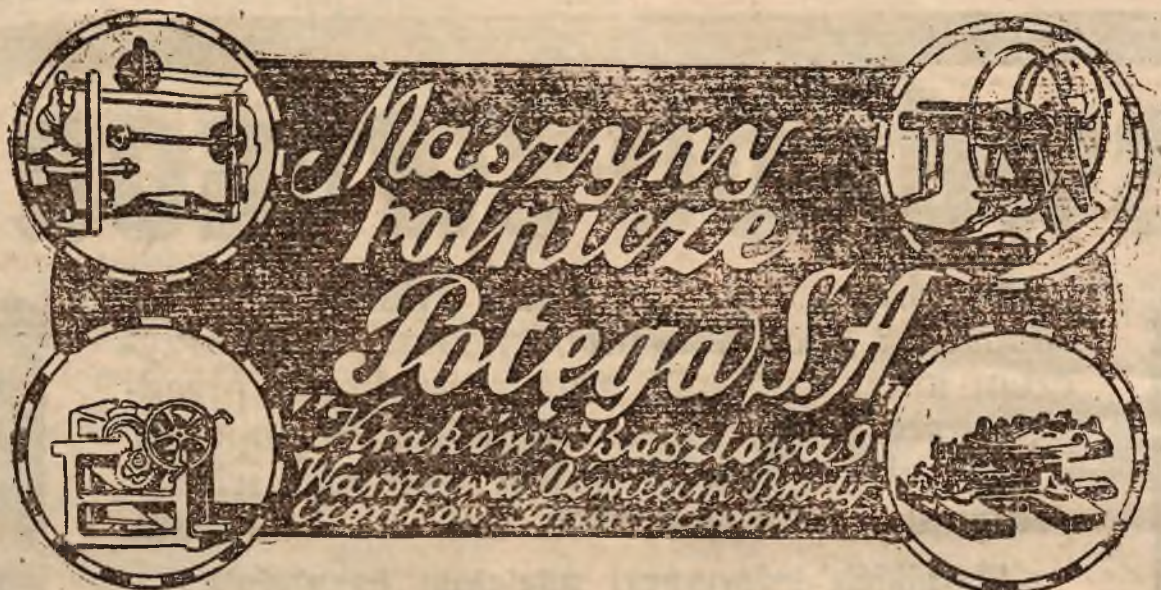 Maszyny
rolnicze
Potęga S.A
"Kraków-Basztowa 9
Warszawa Oświęcim Brody
Czortków Toruń, Lwów